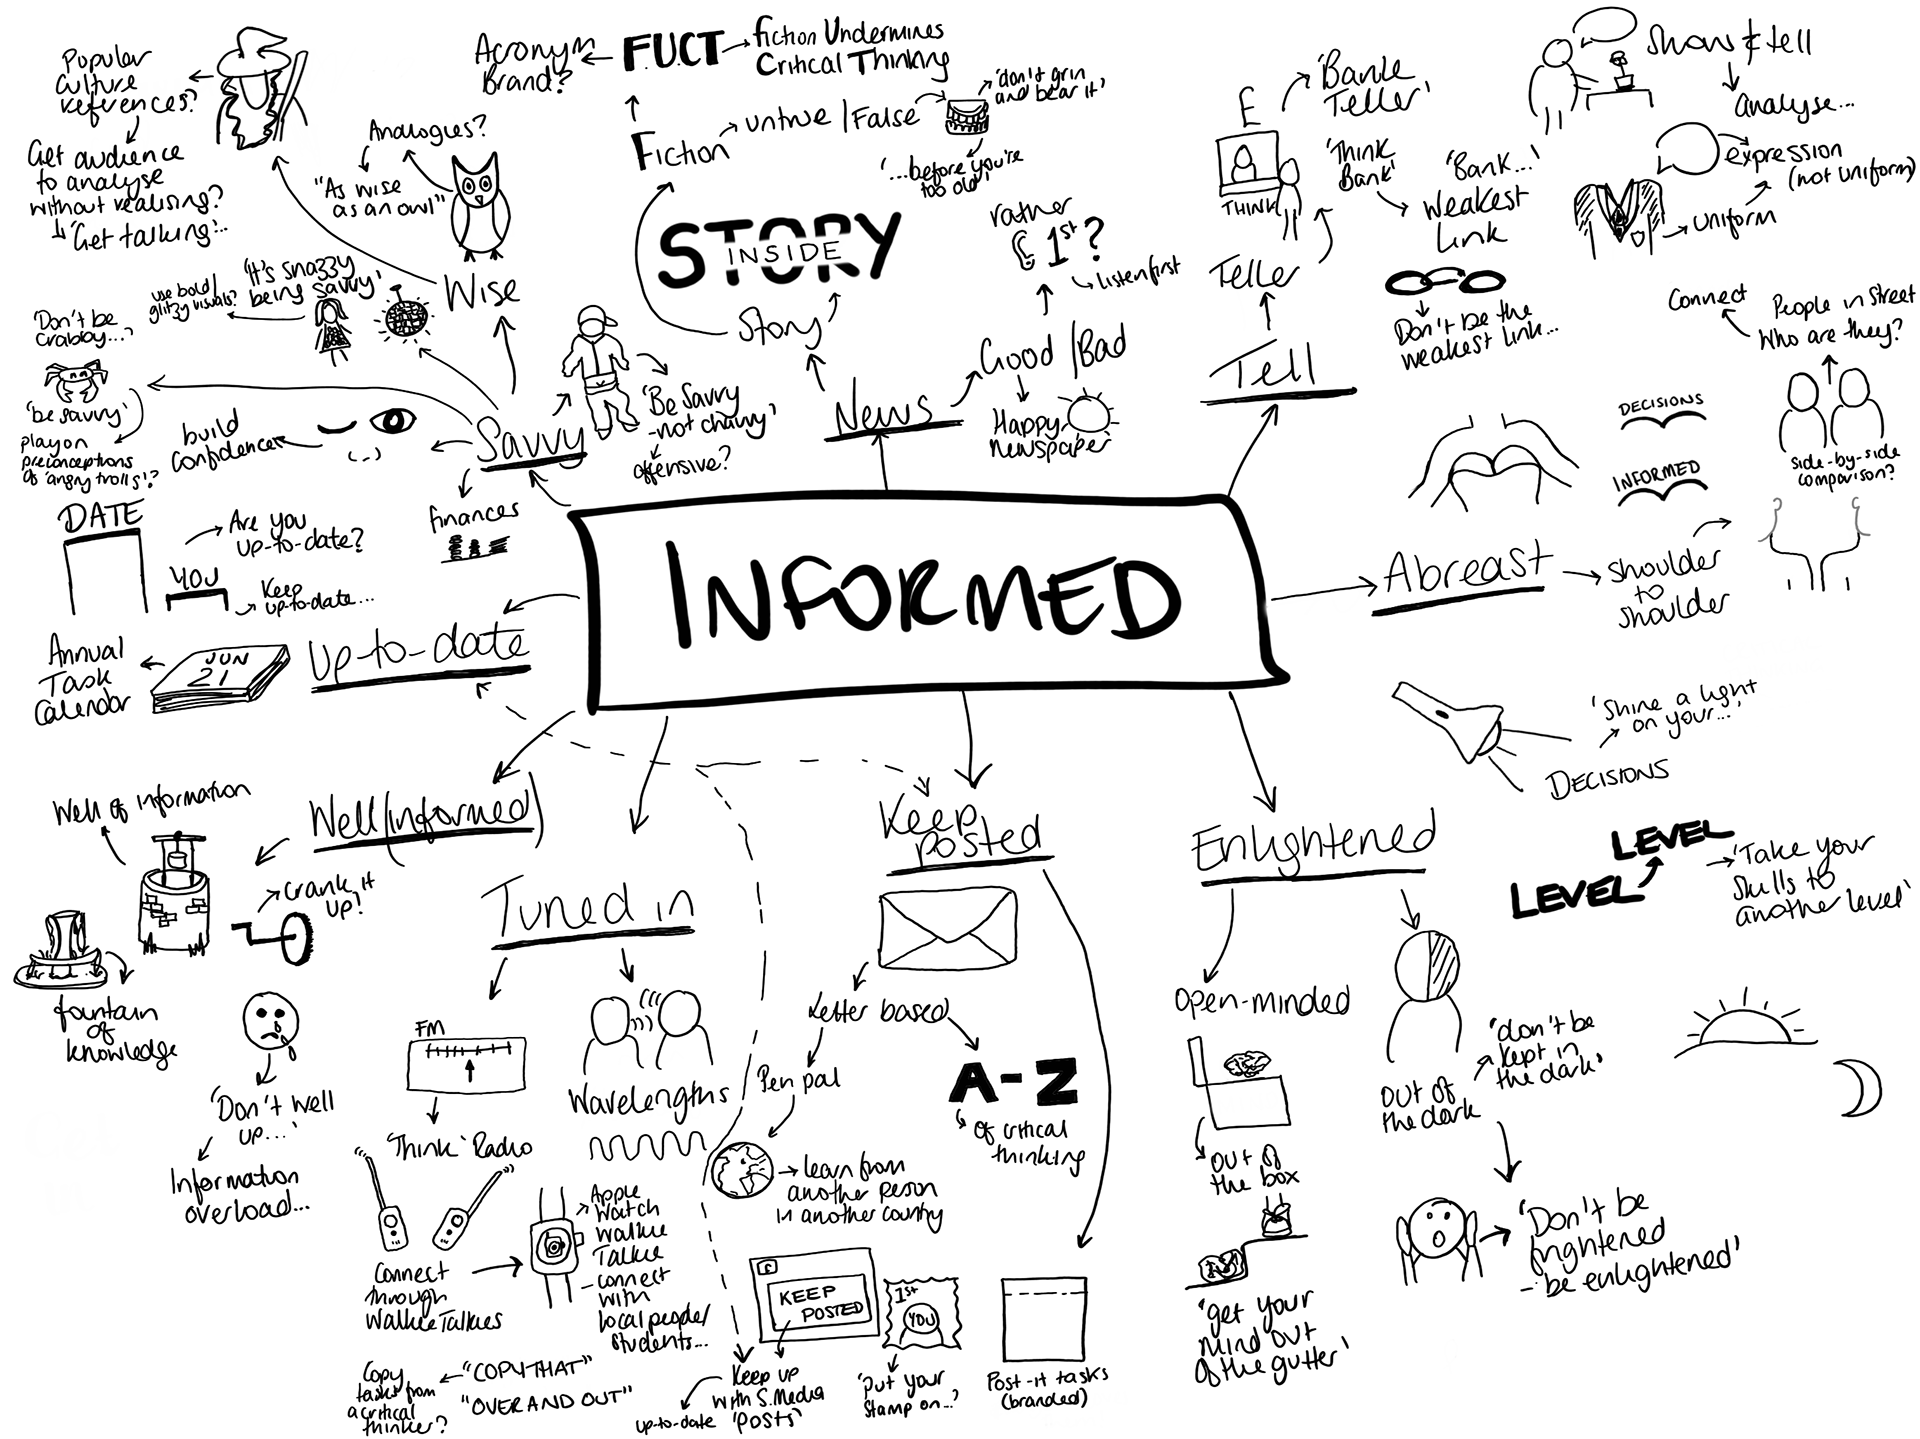 INFORMED
Popular
Culture
references?
Get audience
to analyse
without realising?
'Get talking'...
Analogues?
"As wise
as an owl"
Wise
'It's snazzy
being savvy'
use bold/
glitzy visuals?
'Don't be
crabby...?
'be savvy'
play on
preconceptions
of 'angry trolls'?
build
confidence
Savvy
'Be Savvy
-not chavvy'
offensive?
finances
Acronym
Brand?
F.U.C.T
Fiction Undermines
Critical Thinking
Fiction
untrue/False
'don't grin
and bear it'
'...before you're
too old'
STORY
INSIDE
Story
News
rather
1st?
listen first
Good/Bad
Happy
newspaper
E
THINK
'Bank
Teller'
'Think
Bank'
'Bank...'
Weakest
Link
Don't be the
weakest link...
Teller
Tell
Show & tell
Analyse...
expression
(not uniform)
uniform
Connect
People in Street
Who are they?
side-by-side
comparison?
DECISIONS
INFORMED
Abreast
shoulder
to
shoulder
DATE
YOU
Are you
up-to-date?
Keep
up-to-date...
Annual
Task
Calendar
JUN
21
Up-to-date
Well of information
Well(informed)
Crank it
up?
fountain
of
knowledge
'Don't well
up...'
Information
overload...
Tuned in
FM
'Think' Radio
Wavelengths
Connect
through
Walkie Talkies
Apple
Watch
Walkie
Talkie
- connect
with
local people/
students...
Copy
tasks from
a critical
thinker?
"COPY THAT"
"OVER AND OUT"
Keep
posted
Letter based
Pen pal
A-Z
of critical
thinking
learn from
another person
in another country
KEEP
POSTED
Keep up
with S.Media
'posts'
up-to-date
1st
YOU
'Put your
stamp on...?
Post-it tasks
(branded)
Enlightened
Open-minded
out of
the box
'get your
mind out
of the gutter'
out of
the dark
'don't be
kept in
the dark'
'Don't be
frightened
- be enlightened'
'Shine a light
on your...'
DECISIONS
LEVEL
LEVEL
'Take your
skills to
another level'